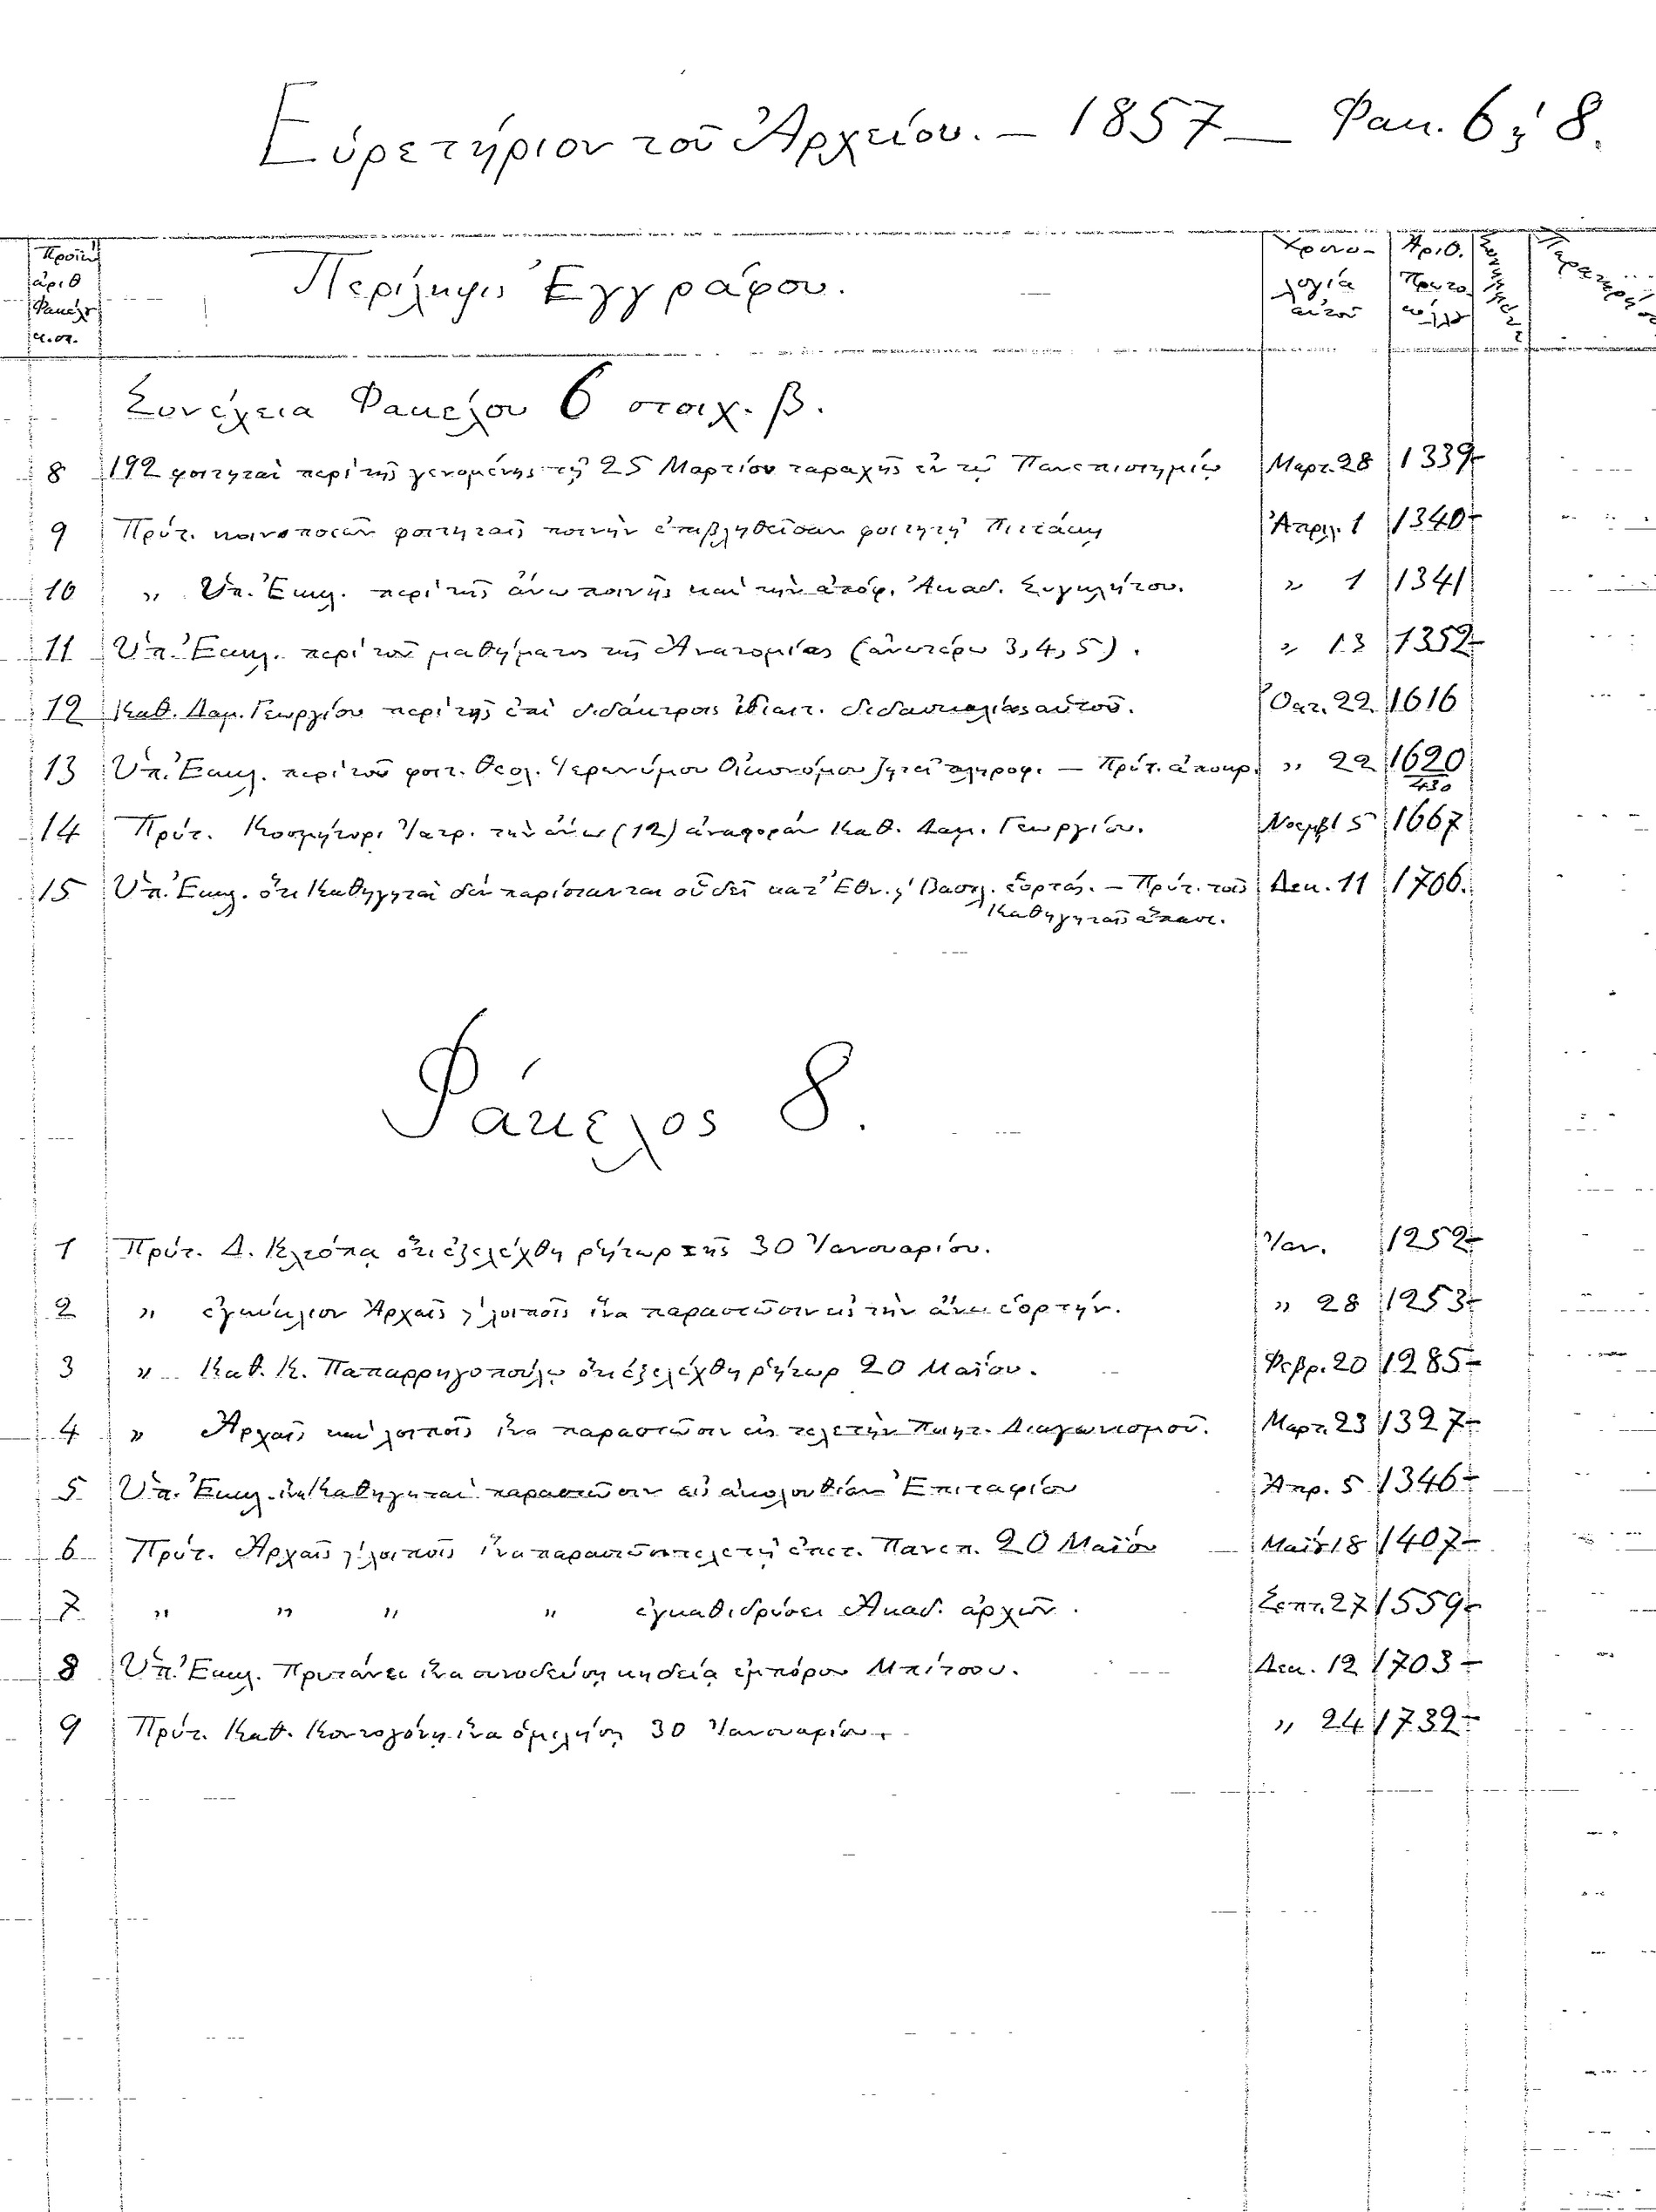 Εὑρετήριον τοῦ Ἀρχείου. – 1857 – Φακ. 6 ϗ 8.
ἀριθ
Περίληψις Ἐγγράφου.
Χρονο- Ἀριθ.
λογία Πρωτο
αὐτοῦ κόλλου
Συνέχεια Φακέλου 6 στοιχ. β.
8 192 φοιτηταὶ περὶ τῆς γενομένης τῇ 25 Μαρτίου ταραχῆς ἐν τῷ Πανεπιστημίῳ Μαρτ. 28 1339-
9 Πρύτ. κοινοποιῶν φοιτηταῖς ποινὴν ἐπιβληθεῖσαν φοιτητῇ Πιττάκῃ Ἀπριλ. 1 1340-
10 " Ὑπ. Ἐκκλ. περὶ τῆς ἄνω ποινῆς καὶ τὴν ἀπόφ. Ἀκαδ. Συγκλήτου. " 1 1341
11 Ὑπ. Ἐκκλ. περὶ τοῦ μαθήματος τῆς Ἀνατομίας (ἀνωτέρω 3, 4, 5). " 13 1352-
12 Καθ. Δαμ. Γεωργίου περὶ τῆς ἐπὶ διδάκτροις ἰδιαιτ. διδασκαλίας αὐτοῦ. Ὀκτ. 22 1616
13 Ὑπ. Ἐκκλ. περὶ τοῦ φοιτ. Θεολ. Ἱερωνύμου Οἰκονόμου ζητεῖ πληροφ. – Πρύτ. ἀποκρ. " 22 1620
430
14 Πρύτ. Κοσμήτορι Ἰατρ. τὴν ἄνω (12) ἀναφορὰν Καθ. Δαμ. Γεωργίου. Νοεμβ 5 1667
15 Ὑπ. Ἐκκλ. ὅτι Καθηγηταὶ δὲν παρίστανται οὗ δεῖ κατ' Ἐθν. ϗ Βασιλ. ἑορτάς. – Πρύτ. τοῖς Δεκ. 11 1706.
Καθηγηταῖς ἅπασι.
Φάκελος 8.
1 Πρύτ. Δ. Κλεόπᾳ ὅτι ἐξελέχθη ῥήτωρ τῆς 30 Ἰανουαρίου. Ἰαν. 1252-
2 " ἐγκύκλιον Ἀρχαῖς ϗ λοιποῖς ἵνα παραστῶσιν εἰς τὴν ἄνω ἑορτήν. " 28 1253-
3 " Καθ. Κ. Παπαρρηγοπούλῳ ὅτι ἐξελέχθη ῥήτωρ 20 Μαΐου. Φεβρ. 20 1285-
4 " Ἀρχαῖς καὶ λοιποῖς ἵνα παραστῶσιν εἰς τελετὴν Ποιητ. Διαγωνισμοῦ. Μαρτ. 23 1327-
5 Ὑπ. Ἐκκλ. ἵνα Καθηγηταὶ παραστῶσιν εἰς ἀκολουθίαν Ἐπιταφίου Ἀπρ. 5 1346-
6 Πρύτ. Ἀρχαῖς ϗ λοιποῖς ἵνα παραστῶσι τελετῇ ἐπετ. Πανεπ. 20 Μαΐου Μαΐου 18 1407-
7 " " " " ἐγκαθιδρύσει Ἀκαδ. ἀρχῶν. Σεπτ. 27 1559-
8 Ὑπ. Ἐκκλ. Πρυτάνει ἵνα συνοδεύσῃ κηδείᾳ ἐμπόρου Μπίτσου. Δεκ. 12 1703-
9 Πρύτ. Καθ. Κοντογόνῃ ἵνα ὁμιλήσῃ 30 Ἰανουαρίου. " 24 1732-